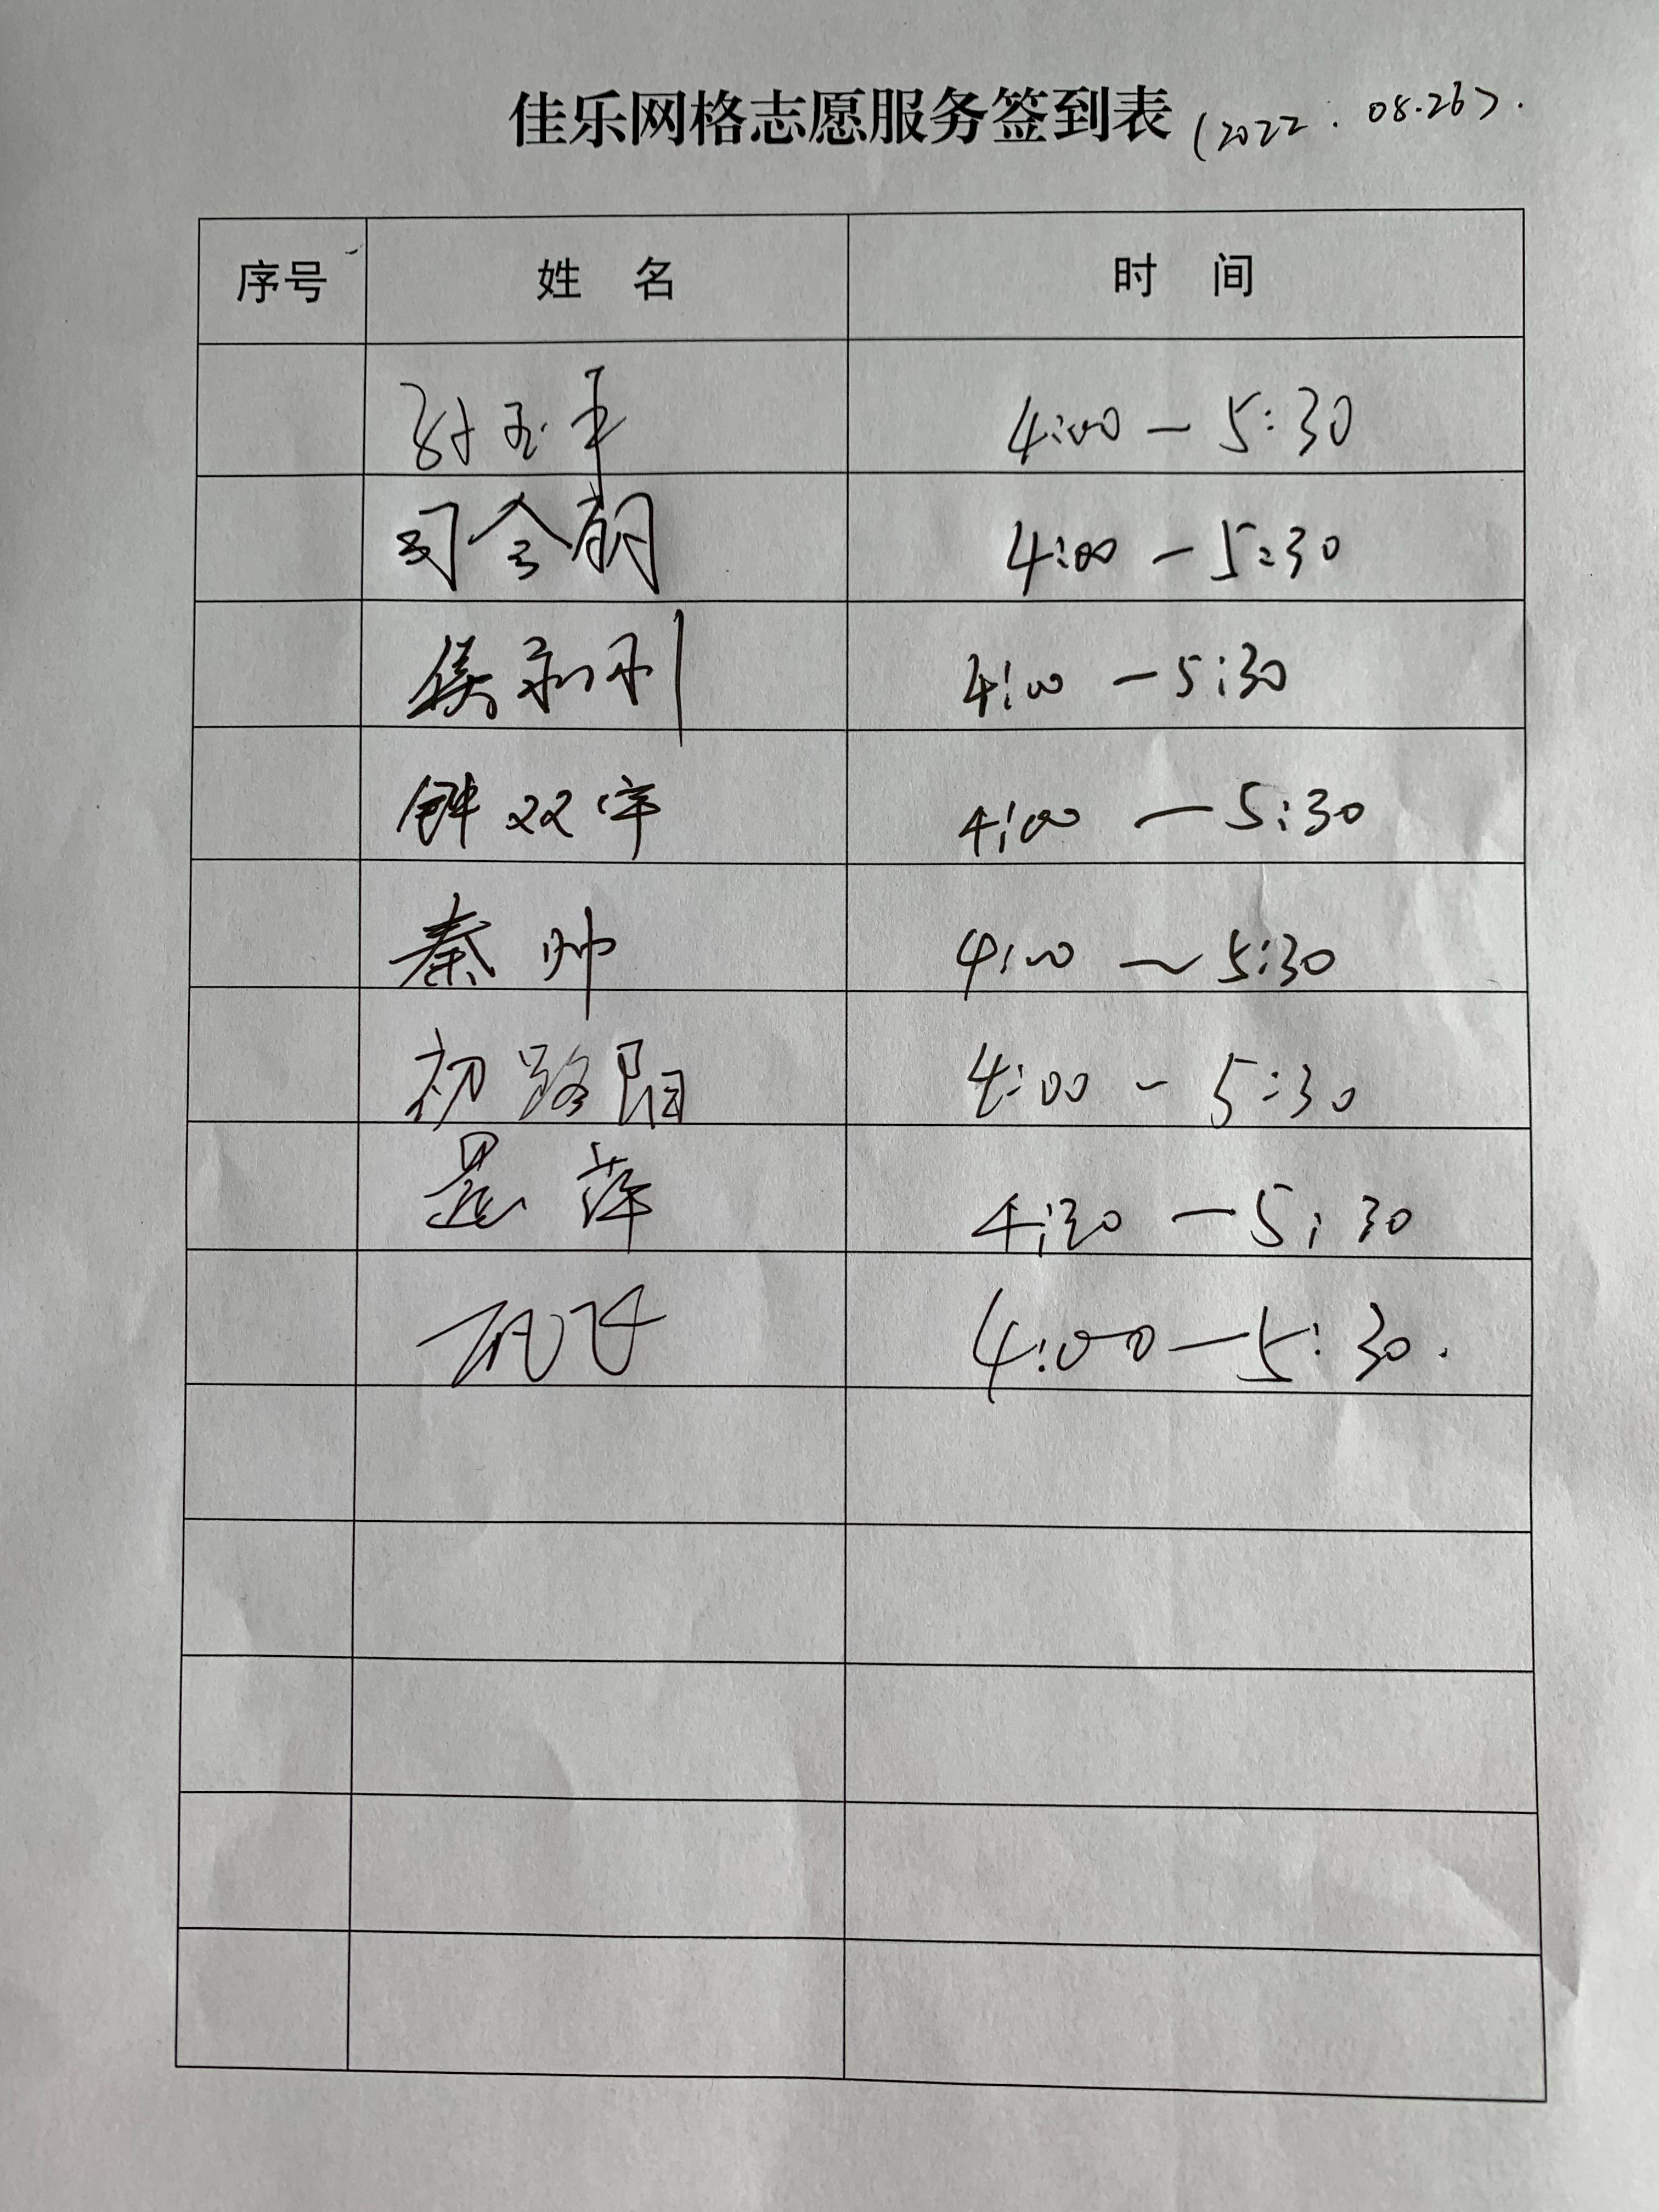 佳乐网格志愿服务签到表 (2022.08.26).
序号 姓 名 时 间
孙玉丰 4:00-5:30
司令朝 4:00-5:30
侯永刚 4:00-5:30
双宇 4:00-5:30
秦帅 4:00~5:30
初路阳 4:00-5:30
萍 4:30-5:30
飞 4:00-5:30.